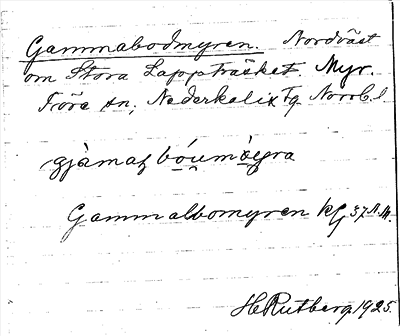 Gammabodmyren. Nordväst
om Stora Lappträsket. Myr.
Töre sn, Nederkalix Tg Norrb. l
gjàmaţ bóumòęra
Gammalbomyren kg 37 N.M.
H Rutberg 1925.